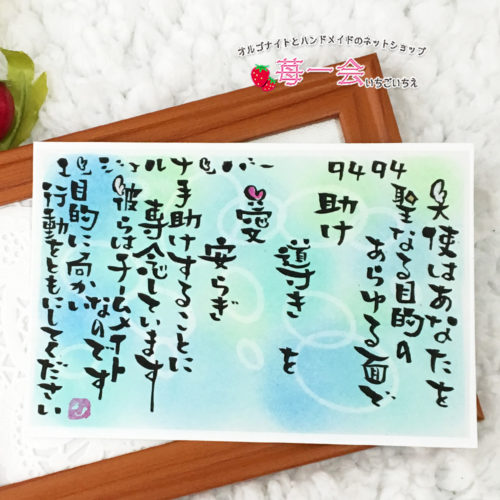 オルゴナイトとハンドメイドのネットショップ
苺一会
いちごいちえ
エンジェルナンバー
9494
天使はあなたを
聖なる目的の
あらゆる面で
助け
導き を
愛
安らぎ
手助けすることに
専念しています
彼らはチームメイト
なのです
目的に向かい
行動をともにしてください